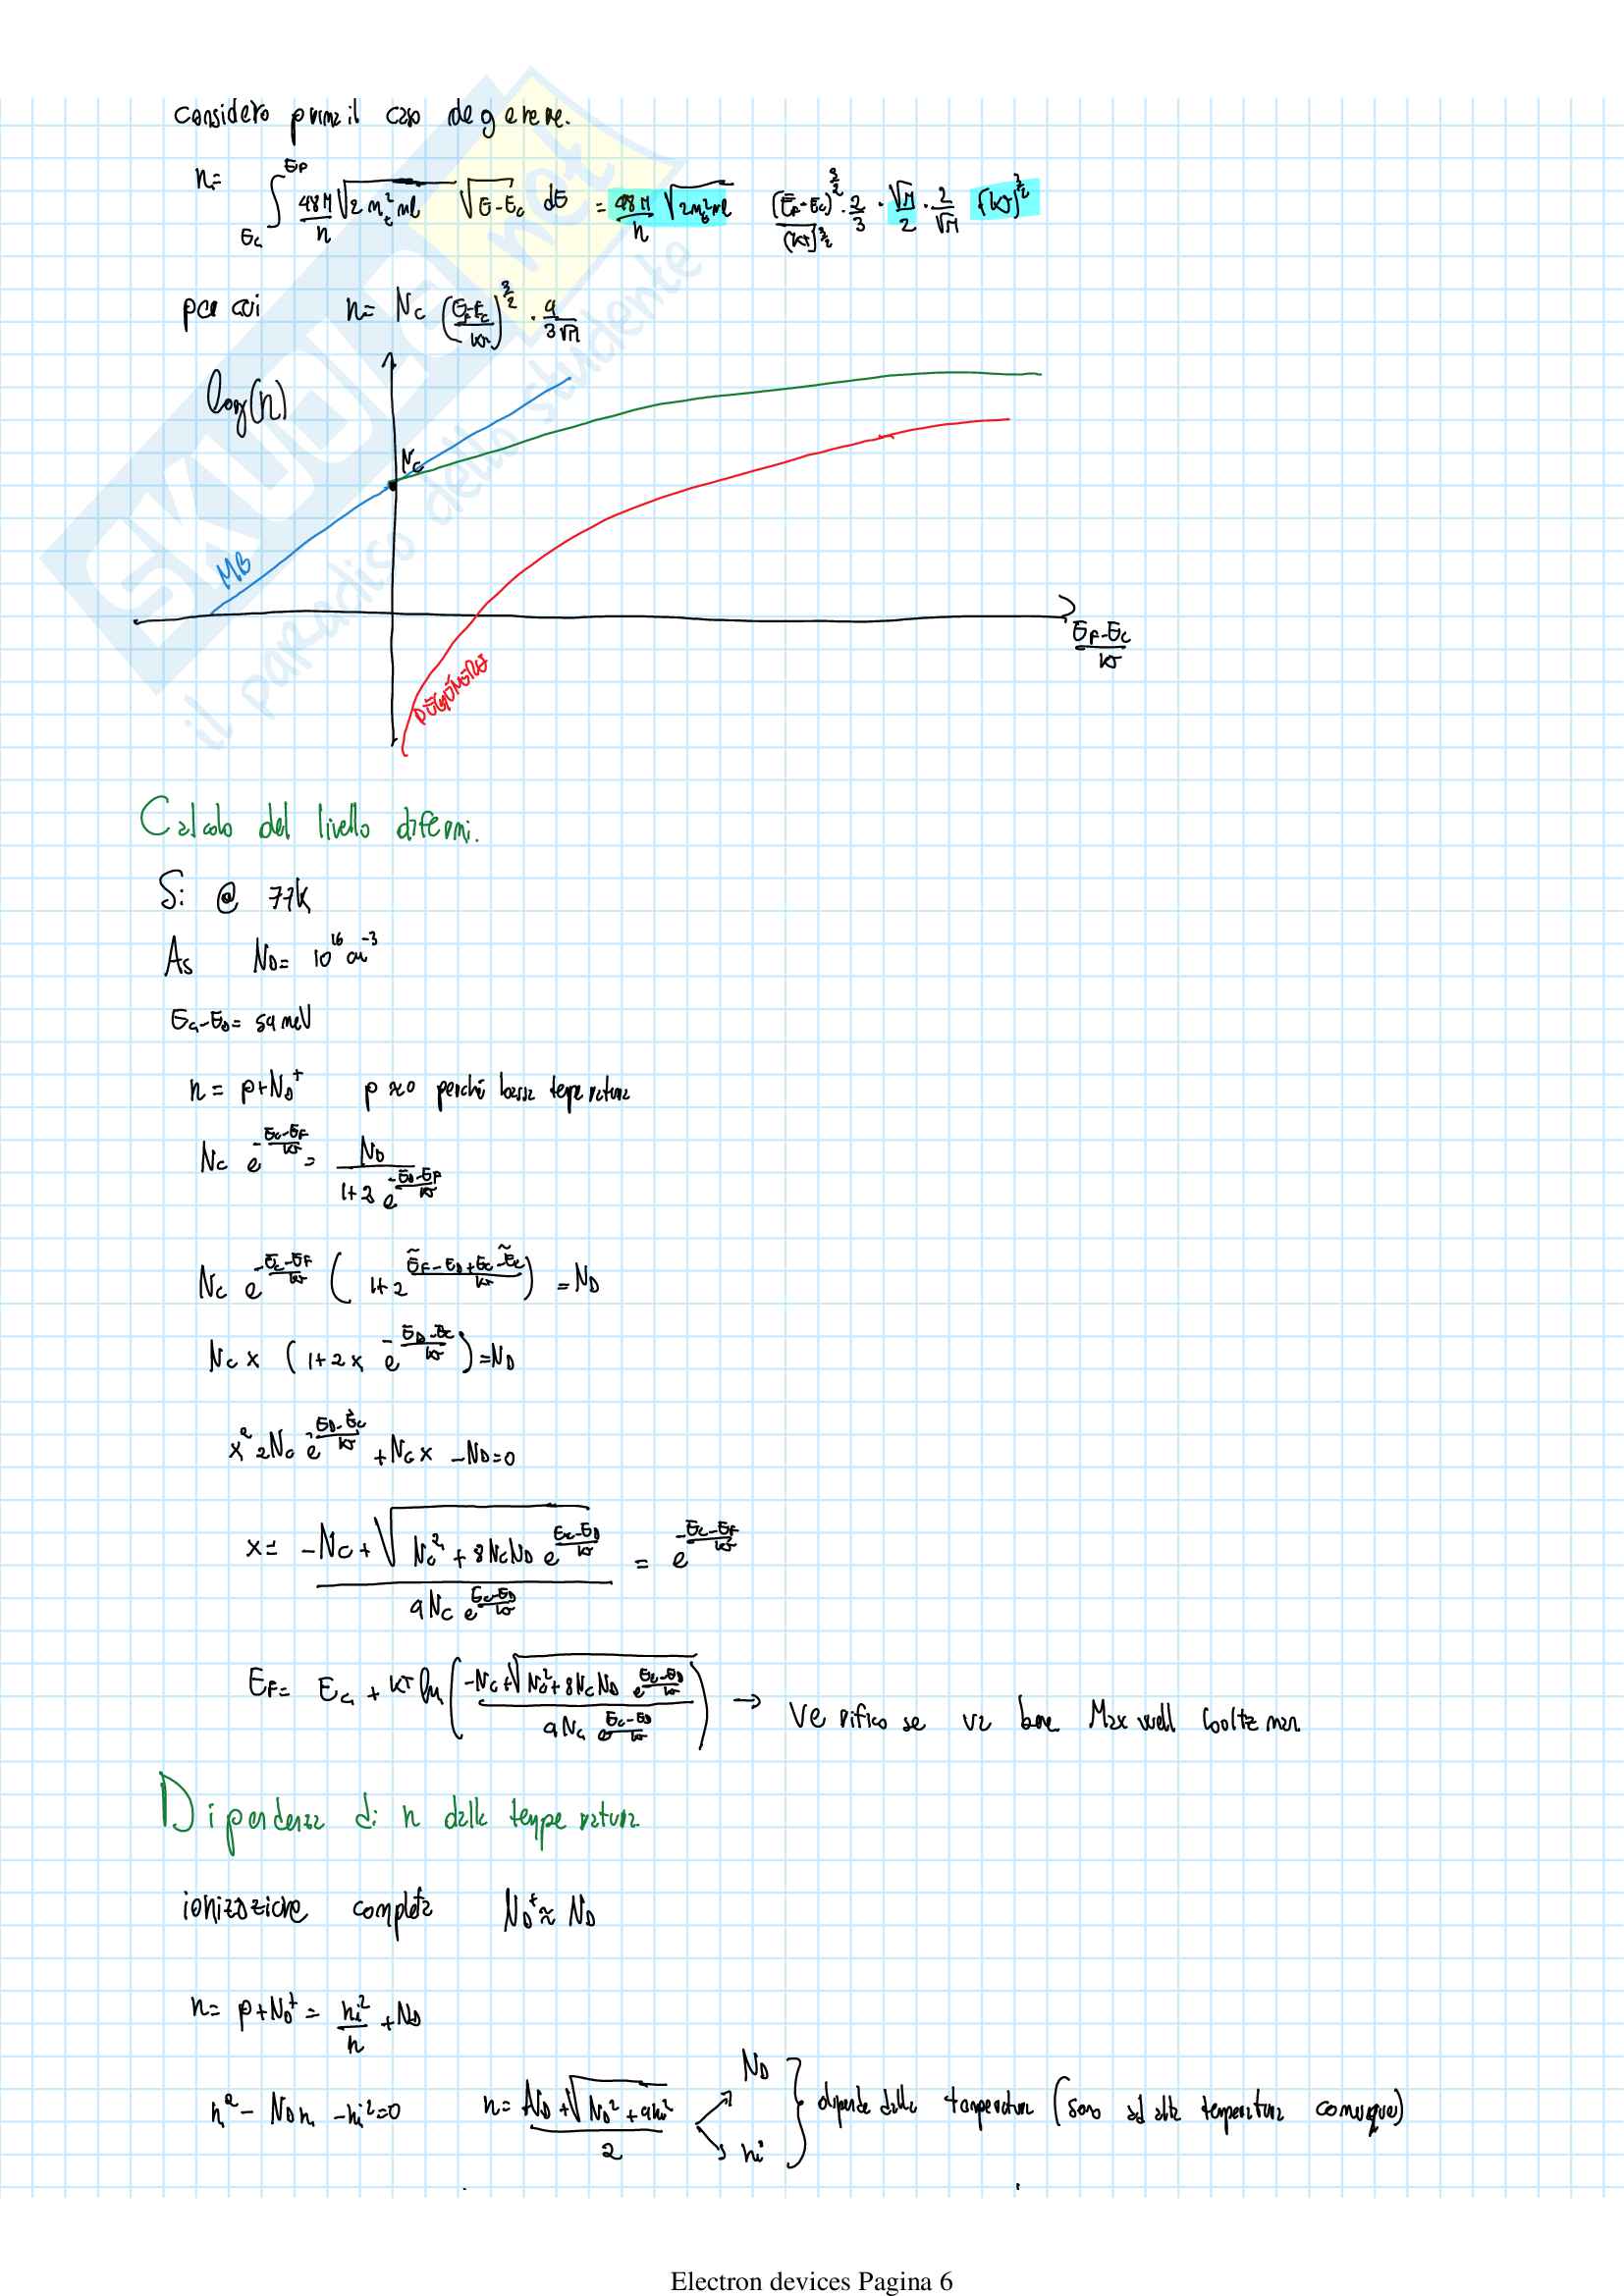 considero prima il caso degenere.
n = ∫_{Ec}^{EF} 48π/h √(2 m_t² ml) √(E-Ec) dE = 48π/h √(2m_t² ml) (EF-Ec)^{3/2}/(kT)^{3/2} · 2/3 · √π/2 · 2/√π (kT)^{3/2}
per cui n = Nc ((EF-Ec)/kT)^{3/2} · 4/(3√π)
log(n)
Nc
MB
(EF-Ec)/kT
DEGENERE
Calcolo del livello di fermi.
Si @ 77K
As ND = 10^16 cm^-3
Ec-ED = 54 meV
n = p+ND⁺ p≈0 perché bassa temperatura
Nc e^{-(Ec-EF)/kT} = ND/(1+2 e^{-(ED-EF)/kT})
Nc e^{-(Ec-EF)/kT} (1+2^{(EF-ED+Ec-Ec)/kT}) = ND
Nc x (1+2x e^{-(ED-Ec)/kT}) = ND
x² 2Nc e^{-(ED-Ec)/kT} + Nc x - ND = 0
x = (-Nc + √(Nc² + 8NcND e^{(Ec-ED)/kT}))/(4Nc e^{(Ec-ED)/kT}) = e^{-(Ec-EF)/kT}
EF = Ec + kT ln((-Nc+√(Nc²+8NcND e^{(Ec-ED)/kT}))/(4Nc e^{(Ec-ED)/kT})) → Verifico se va bene Maxwell Boltzman
Dipendenza di n dalla temperatura
ionizzazione completa ND⁺ ≈ ND
n = p+ND⁺ = ni²/n + ND
n² - ND n - ni² = 0 n = (ND + √(ND² + 4ni²))/2 ND ni } dipende dalla temperatura (sono ad alte temperatura comunque)
Electron devices Pagina 6
SKUOLA.net
il paradiso dello studente